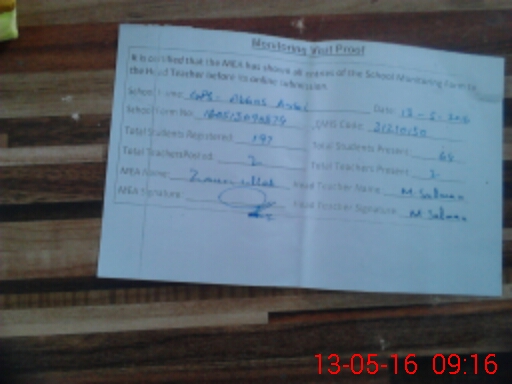 Monitoring Visit Proof
It is certified that the MEA has shown all entries of the School Monitoring Form to
the Head Teacher before its online submission.
School Name: GPS - Abbas Date: 13-5-2016
School Form No. EMIS Code:
Total Students Registered: 197 Total Students Present: 68
Total Teachers Posted: 2 Total Teachers Present: 2
MEA Name: Head Teacher Name: M. Salman
MEA Signature: Head Teacher Signature: M Salman
13-05-16 09:16